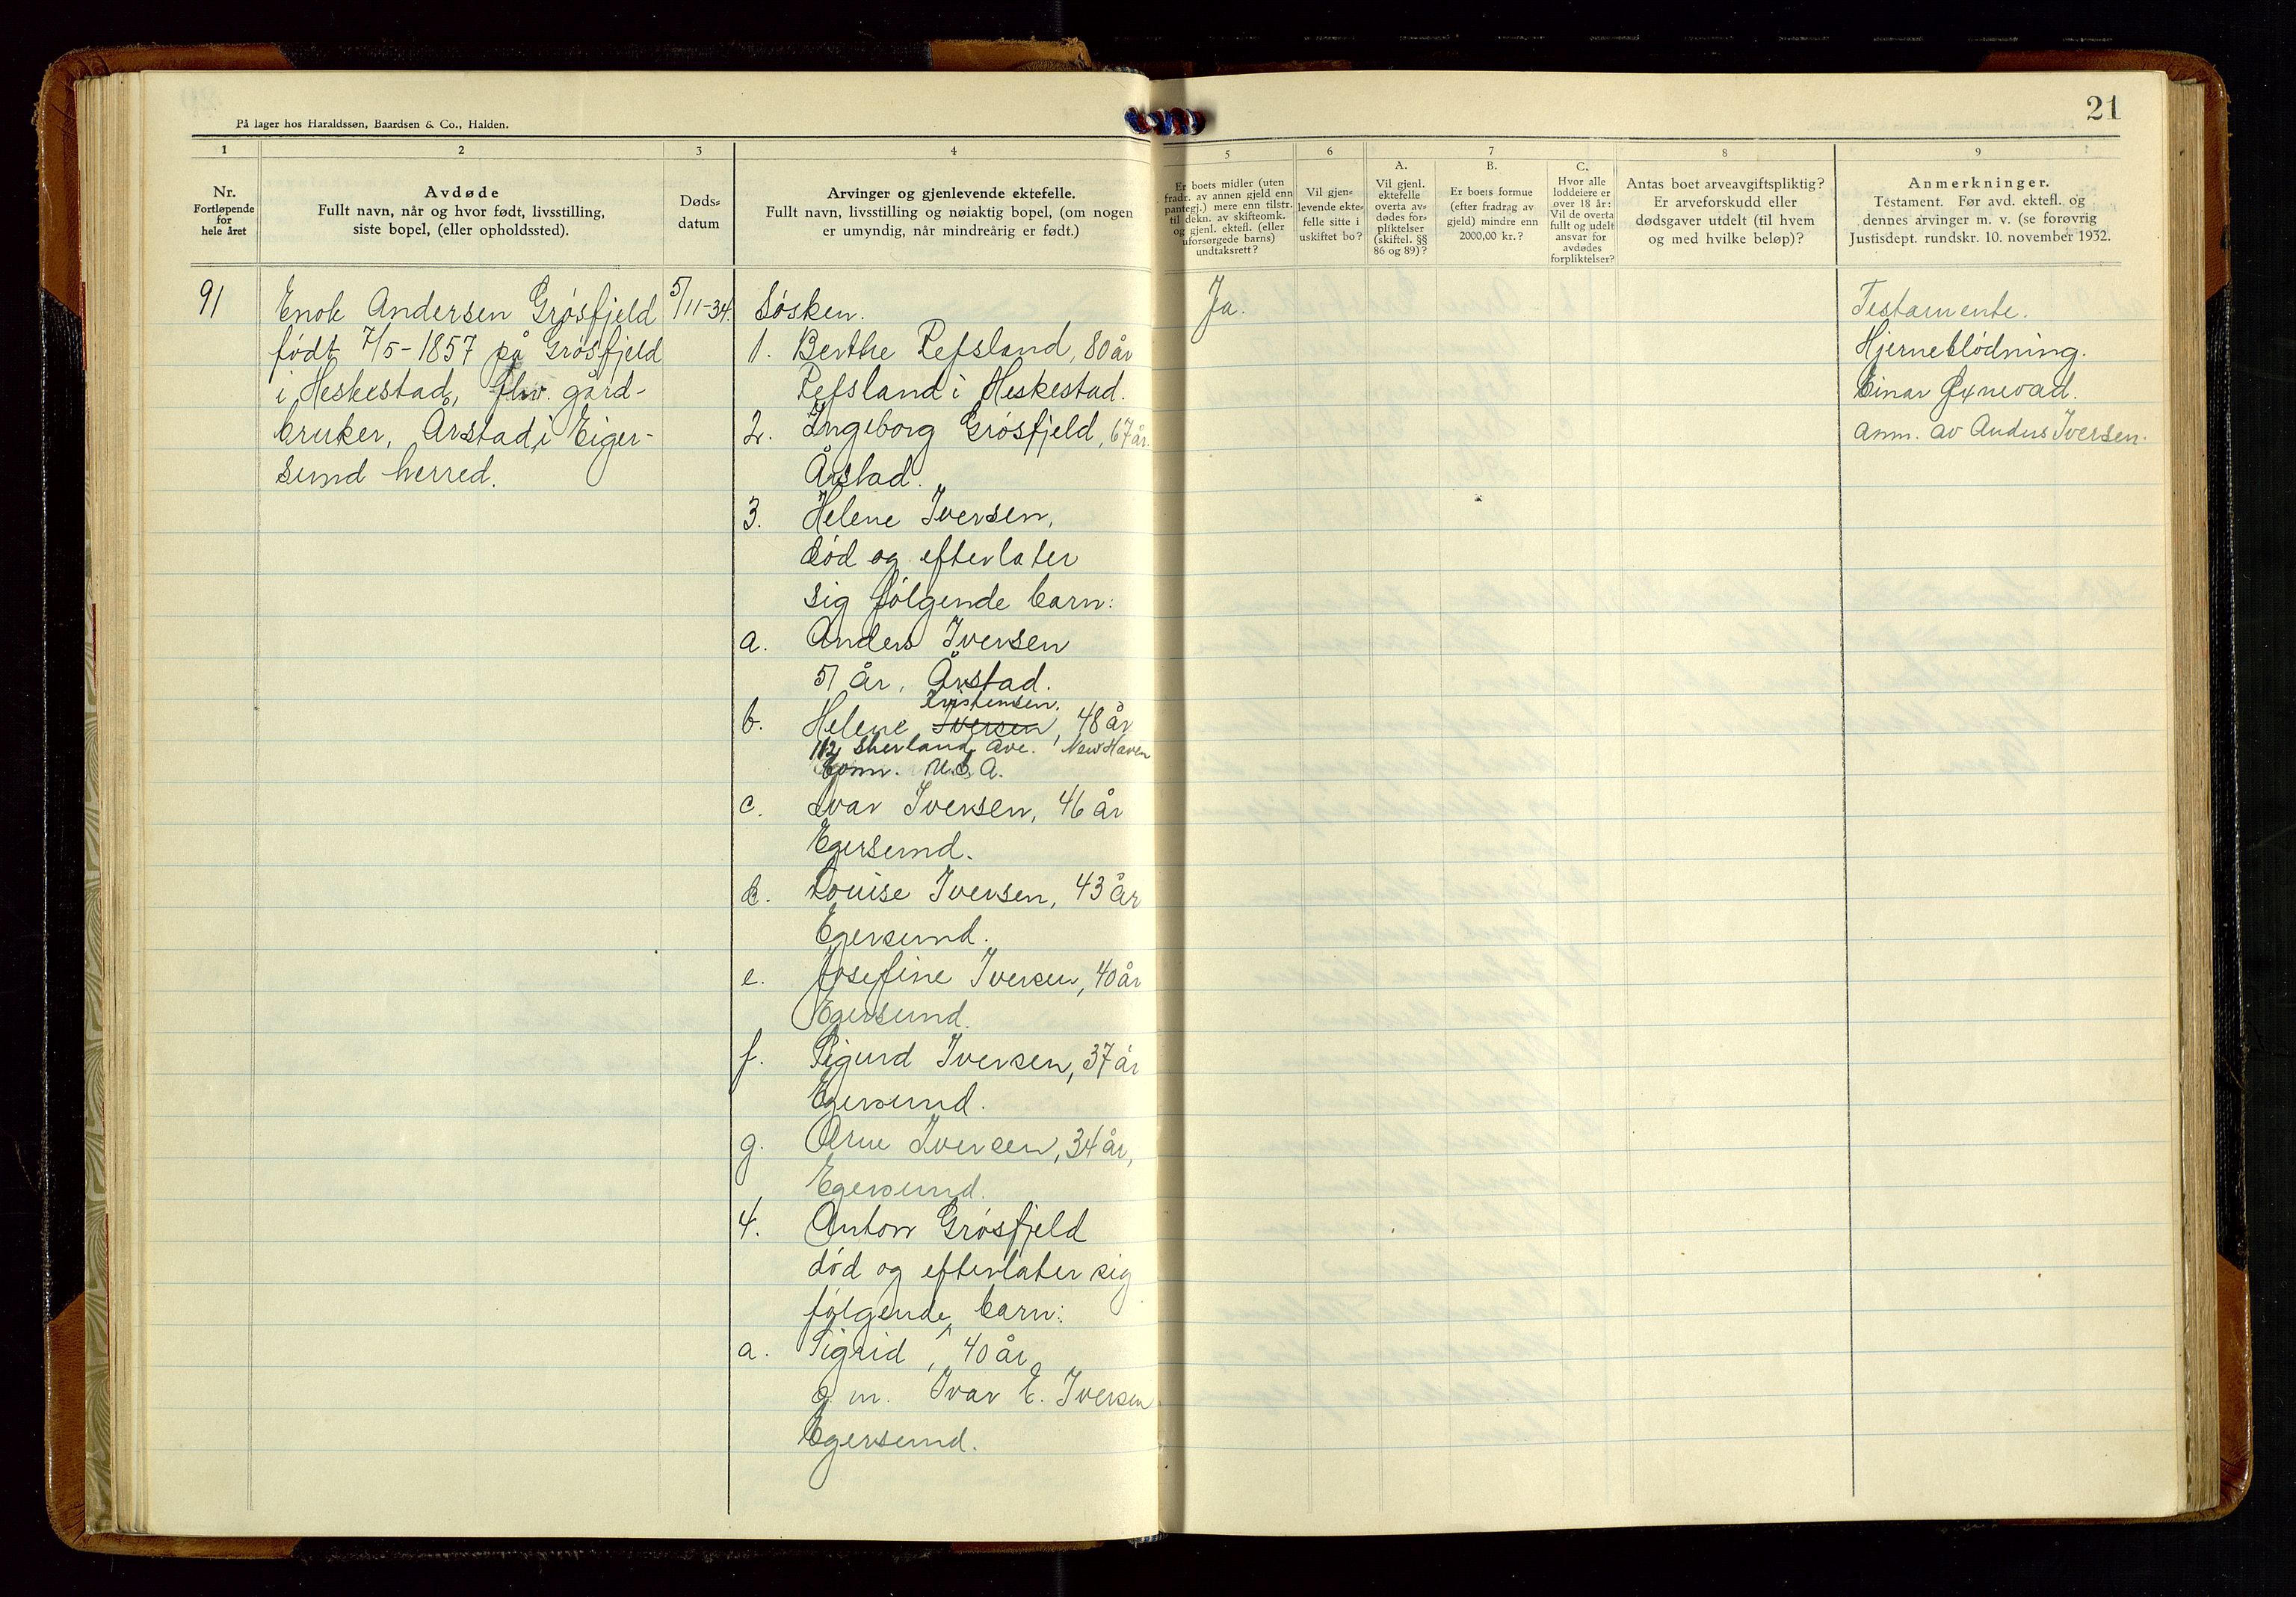 På lager hos Haraldssøn, Baardsen & Co., Halden.
1
Nr.
Fortløpende
for
hele året
2
Avdøde
Fullt navn, når og hvor født, livsstilling,
siste bopel, (eller opholdssted).
3
Døds-
datum
4
Arvinger og gjenlevende ektefelle.
Fullt navn, livsstilling og nøiaktig bopel, (om nogen
er umyndig, når mindreårig er født.)
91
Enok Andersen Grøsfjeld
født 7/5-1857 på Grøsfjeld
i Heskestad, fhv. gård-
bruker, Årstad i Eiger-
sund herred.
5/11-34.
Søsken.
1. Berthe Refsland, 80 år
Refsland i Heskestad.
2. Ingeborg Grøsfjeld, 67 år.
Årstad.
3. Helene Iversen,
død og efterlater
sig følgende barn:
a. Anders Iversen
51 år, Årstad.
Kristensen.
b. Helene Iversen, 48 år
112 Sherland Ave. New Haven
Conn. U.S.A.
c. Ivar Iversen, 46 år
Egersund.
d. Louise Iversen, 43 år
Egersund.
e. Josefine Iversen, 40 år
Egersund.
f. Sigurd Iversen, 37 år
Egersund.
g. Arne Iversen, 34 år,
Egersund.
4. Anton Grøsfjeld
død og efterlater sig
følgende barn:
a. Sigrid, 40 år
g. m. Ivar E. Iversen
Egersund.
21
5
Er boets midler (uten
fradr. av annen gjeld enn
pantegj.) mere enn tilstr.
til dekn. av skifteomk.
og gjenl. ektefl. (eller
uforsørgede barns)
undtaksrett?
6
Vil gjen-
levende ekte-
felle sitte i
uskiftet bo?
7
A.
Vil gjenl.
ektefelle
overta av-
dødes for-
pliktelser
(skiftel. §§
86 og 89)?
B.
Er boets formue
(efter fradrag av
gjeld) mindre enn
2000,00 kr.?
C.
Hvor alle
loddeiere er
over 18 år:
Vil de overta
fullt og udelt
ansvar for
avdødes
forpliktelser?
8
Antas boet arveavgiftspliktig?
Er arveforskudd eller
dødsgaver utdelt (til hvem
og med hvilke beløp)?
9
Anmerkninger.
Testament. Før avd. ektefl. og
dennes arvinger m. v. (se forøvrig
Justisdept. rundskr. 10. november 1932.
Ja.
Testamente.
Hjerneblødning.
Einar Øxnevad.
Anm. av Anders Iversen.